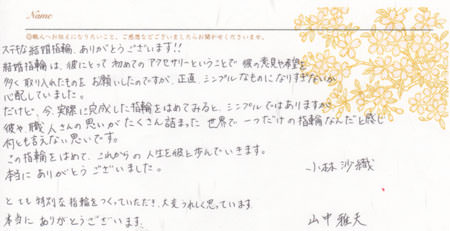 Name
◎職人へお伝えになりたいこと、ご感想などございましたらお聞かせくださいませ。
ステキな結婚指輪、ありがとうございます!!
結婚指輪は、彼にとって初めてのアクセサリーということで、彼の意見や希望を
多く取り入れたものをお願いしたのですが、正直、シンプルなものになりすぎないか
心配していました。
だけど、今、実際に完成した指輪をはめてみると、シンプルではありますが、
彼や、職人さんの思いがたくさん詰まった世界で一つだけの指輪なんだと感じ
何とも言えない思いです。
この指輪をはめて、これからの人生を彼と歩んでいきます。
本当にありがとうございました。
小林沙織
とても特別な指輪をつくっていただき、大変うれしく思っています
本当にありがとうございます。
山中雅夫